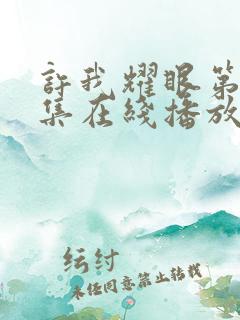 許我耀眼第
集在綫播放
紜紂
未經同意禁止转载